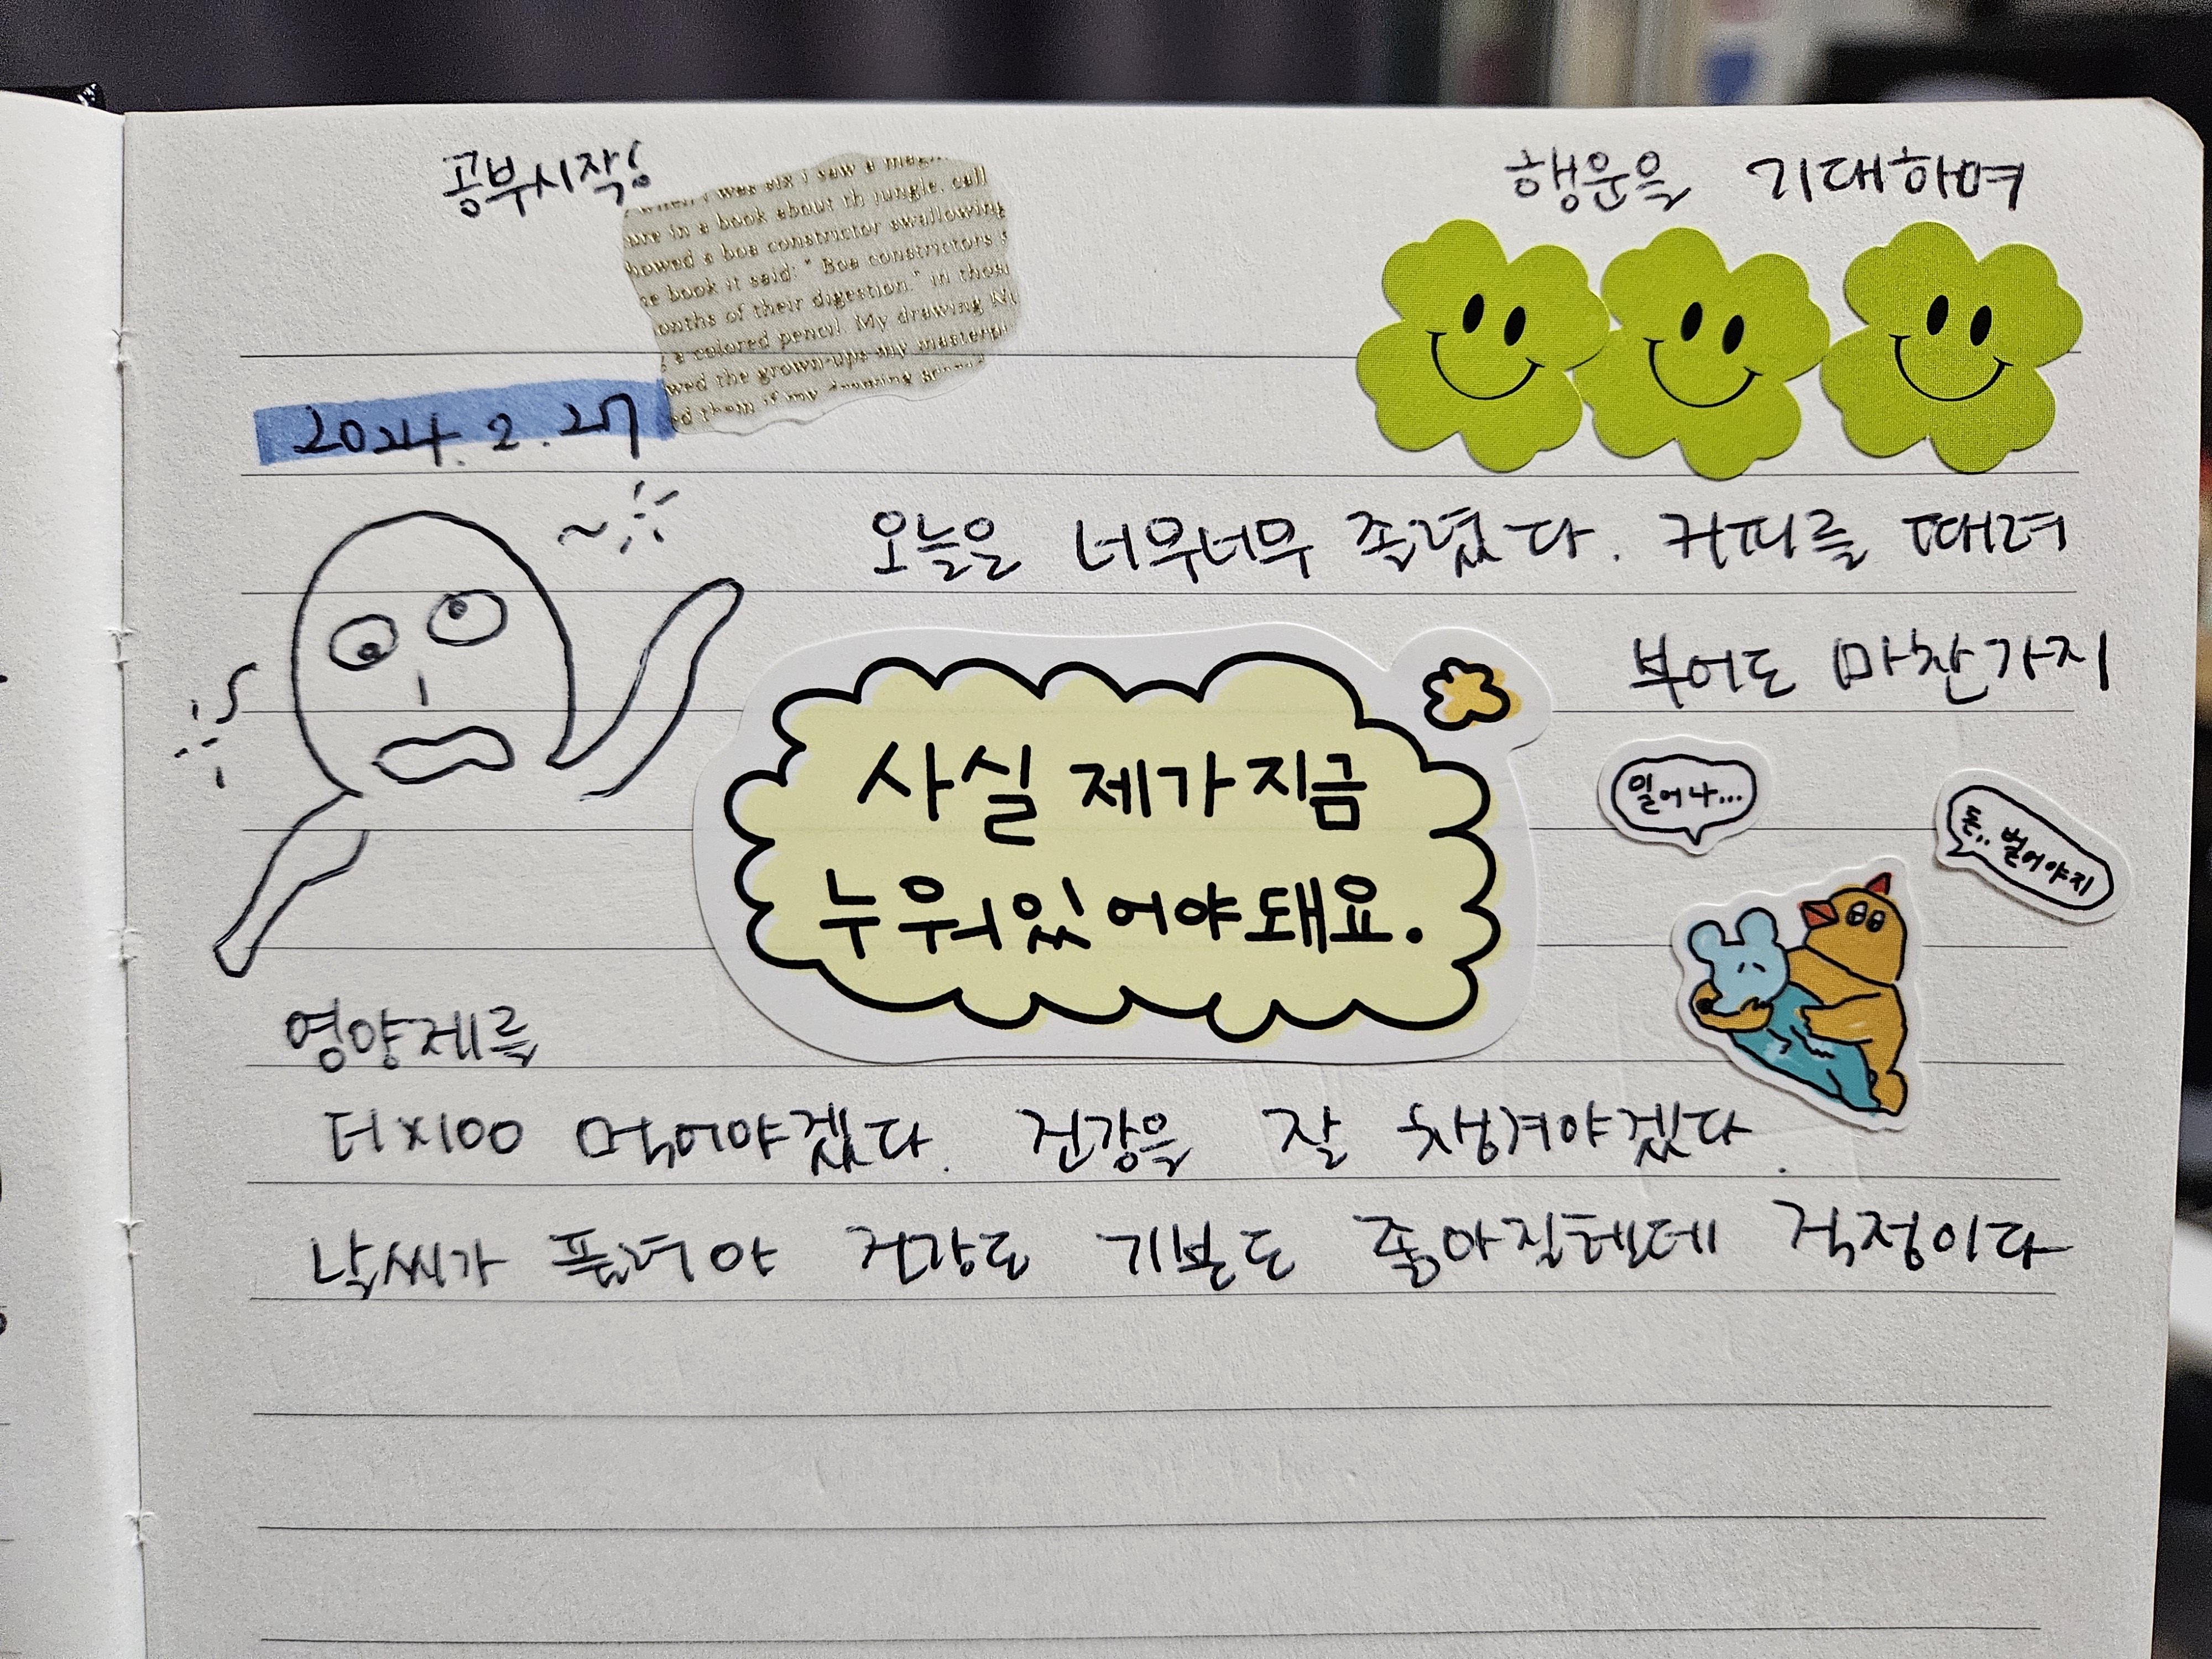 공부시작!
행운을 기대하며
when I was six i saw a
ure in a book about th jungle. call
howed a boa constrictor swallowing
e book it said: " Boa constrictors
onths of their digestion." in thos
a colored pencil. My drawing
wed the grown-ups my masterpi
ed them if my drawing
2024.2.27
오늘은 너무너무 졸렸다. 커피를 때려
부어도 마찬가지
사실 제가 지금
누워있어야돼요.
일어나...
돈.. 벌어야지
영양제를
더x100 먹어야겠다. 건강을 잘 챙겨야겠다.
날씨가 풀려야 건강도 기분도 좋아질텐데 걱정이다